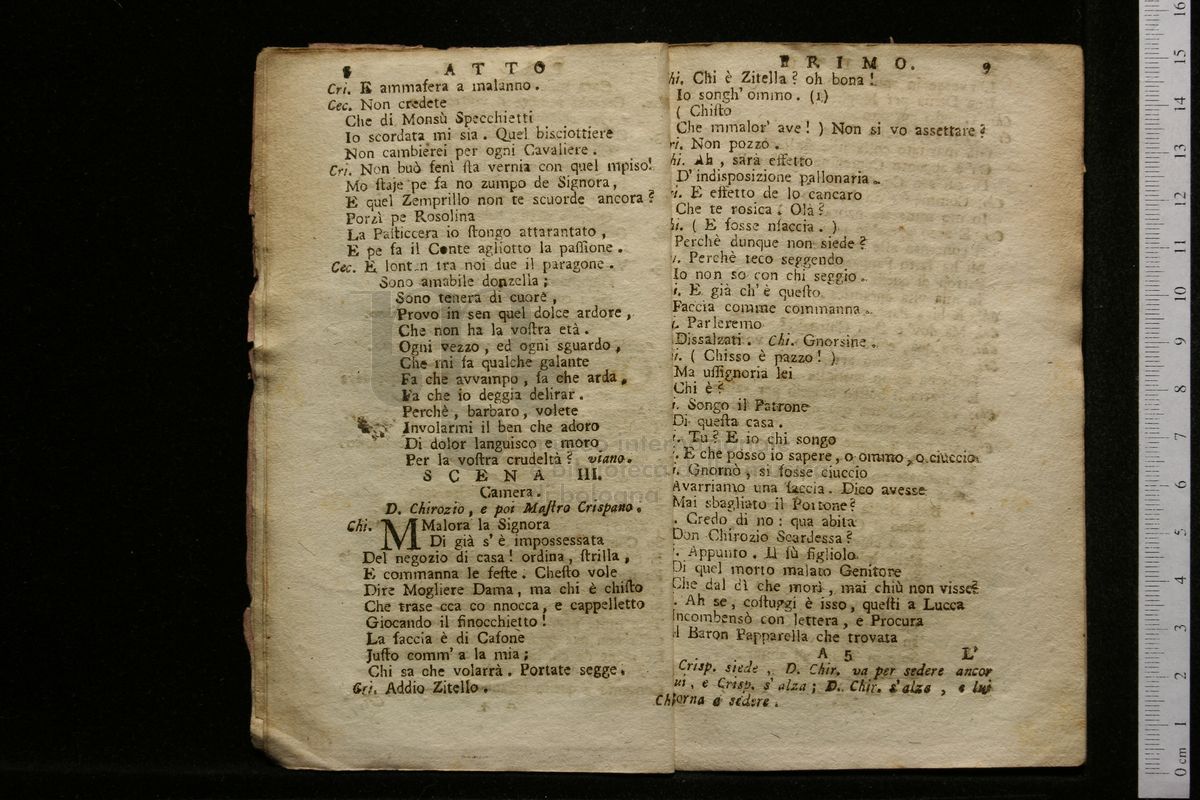 8 ATTO
Cri. E ammaſera a malanno.
Cec. Non credete
Che di Monsù Specchietti
Io scordata mi sia. Quel bisciottiere
Non cambierei per ogni Cavaliere.
Cri. Non buò fenì ſta vernia con quel mpiso!
Mo ſtaje pe fa no zumpo de Signora,
E quel Zemprillo non te scuorde ancora?
Porzì pe Rosolina
La Paſticcera io ſtongo attarantato,
E pe fa il Conte agliotto la paſſione.
Cec. E lontan tra noi due il paragone.
Sono amabile donzella;
Sono tenera di cuore,
Provo in sen quel dolce ardore,
Che non ha la voſtra età.
Ogni vezzo, ed ogni sguardo,
Che mi fa qualche galante
Fa che avvampo, fa che arda,
Fa che io deggia delirar.
Perchè, barbaro, volete
Involarmi il ben che adoro
Di dolor languisco e moro
Per la voſtra crudeltà? viano.
SCENA III.
Camera.
D. Chirozio, e poi Maſtro Crispano.
Chi. MMalora la Signora
Di già s' è impossessata
Del negozio di casa! ordina, ſtrilla,
E commanna le feſte. Cheſto vole
Dire Mogliere Dama, ma chi è chiſto
Che trase cca co nnocca, e cappelletto
Giocando il finocchietto!
La faccia è di Cafone
Juſto comm' a la mia;
Chi sa che volarrà. Portate segge.
Cri. Addio Zitello.
PRIMO. 9
hi. Chi è Zitella? oh bona!
Io songh' ommo. (1)
( Chiſto
Che mmalor' ave! ) Non si vo assettare?
ri. Non pozzo.
hi. Ah, sarà effetto
D' indisposizione pallonaria.
ri. E effetto de lo cancaro
Che te rosica. Olà?
hi. ( E fosse nfaccia. )
Perchè dunque non siede?
i. Perchè teco seggendo
Io non so con chi seggio.
i. E già ch' è queſto
Faccia comme commanna.
i. Parleremo
Dissalzati. Chi. Gnorsine.
i. ( Chisso è pazzo! )
Ma uſſignoria lei
Chi è?
i. Songo il Patrone
Di queſta casa.
i. Tu? E io chi songo
. E che posso io sapere, o ommo, o ciuccio
i. Gnornò, si fosse ciuccio
Avarriamo una faccia. Dico avesse
Mai sbagliato il Portone?
. Credo di no: qua abita
Don Chirozio Scardessa?
. Appunto. Il fù figliolo
Di quel morto malato Genitore
Che dal dì che morì, mai chiù non visse?
. Ah se, coſtuggi è isso, queſti a Lucca
Incombensò con lettera, e Procura
l Baron Papparella che trovata
A 5 L'
Crisp. siede, D. Chir. va per sedere ancor
ui, e Crisp. s' alza; D. Chir. s'alza, e lui
Chi orna a sedere.